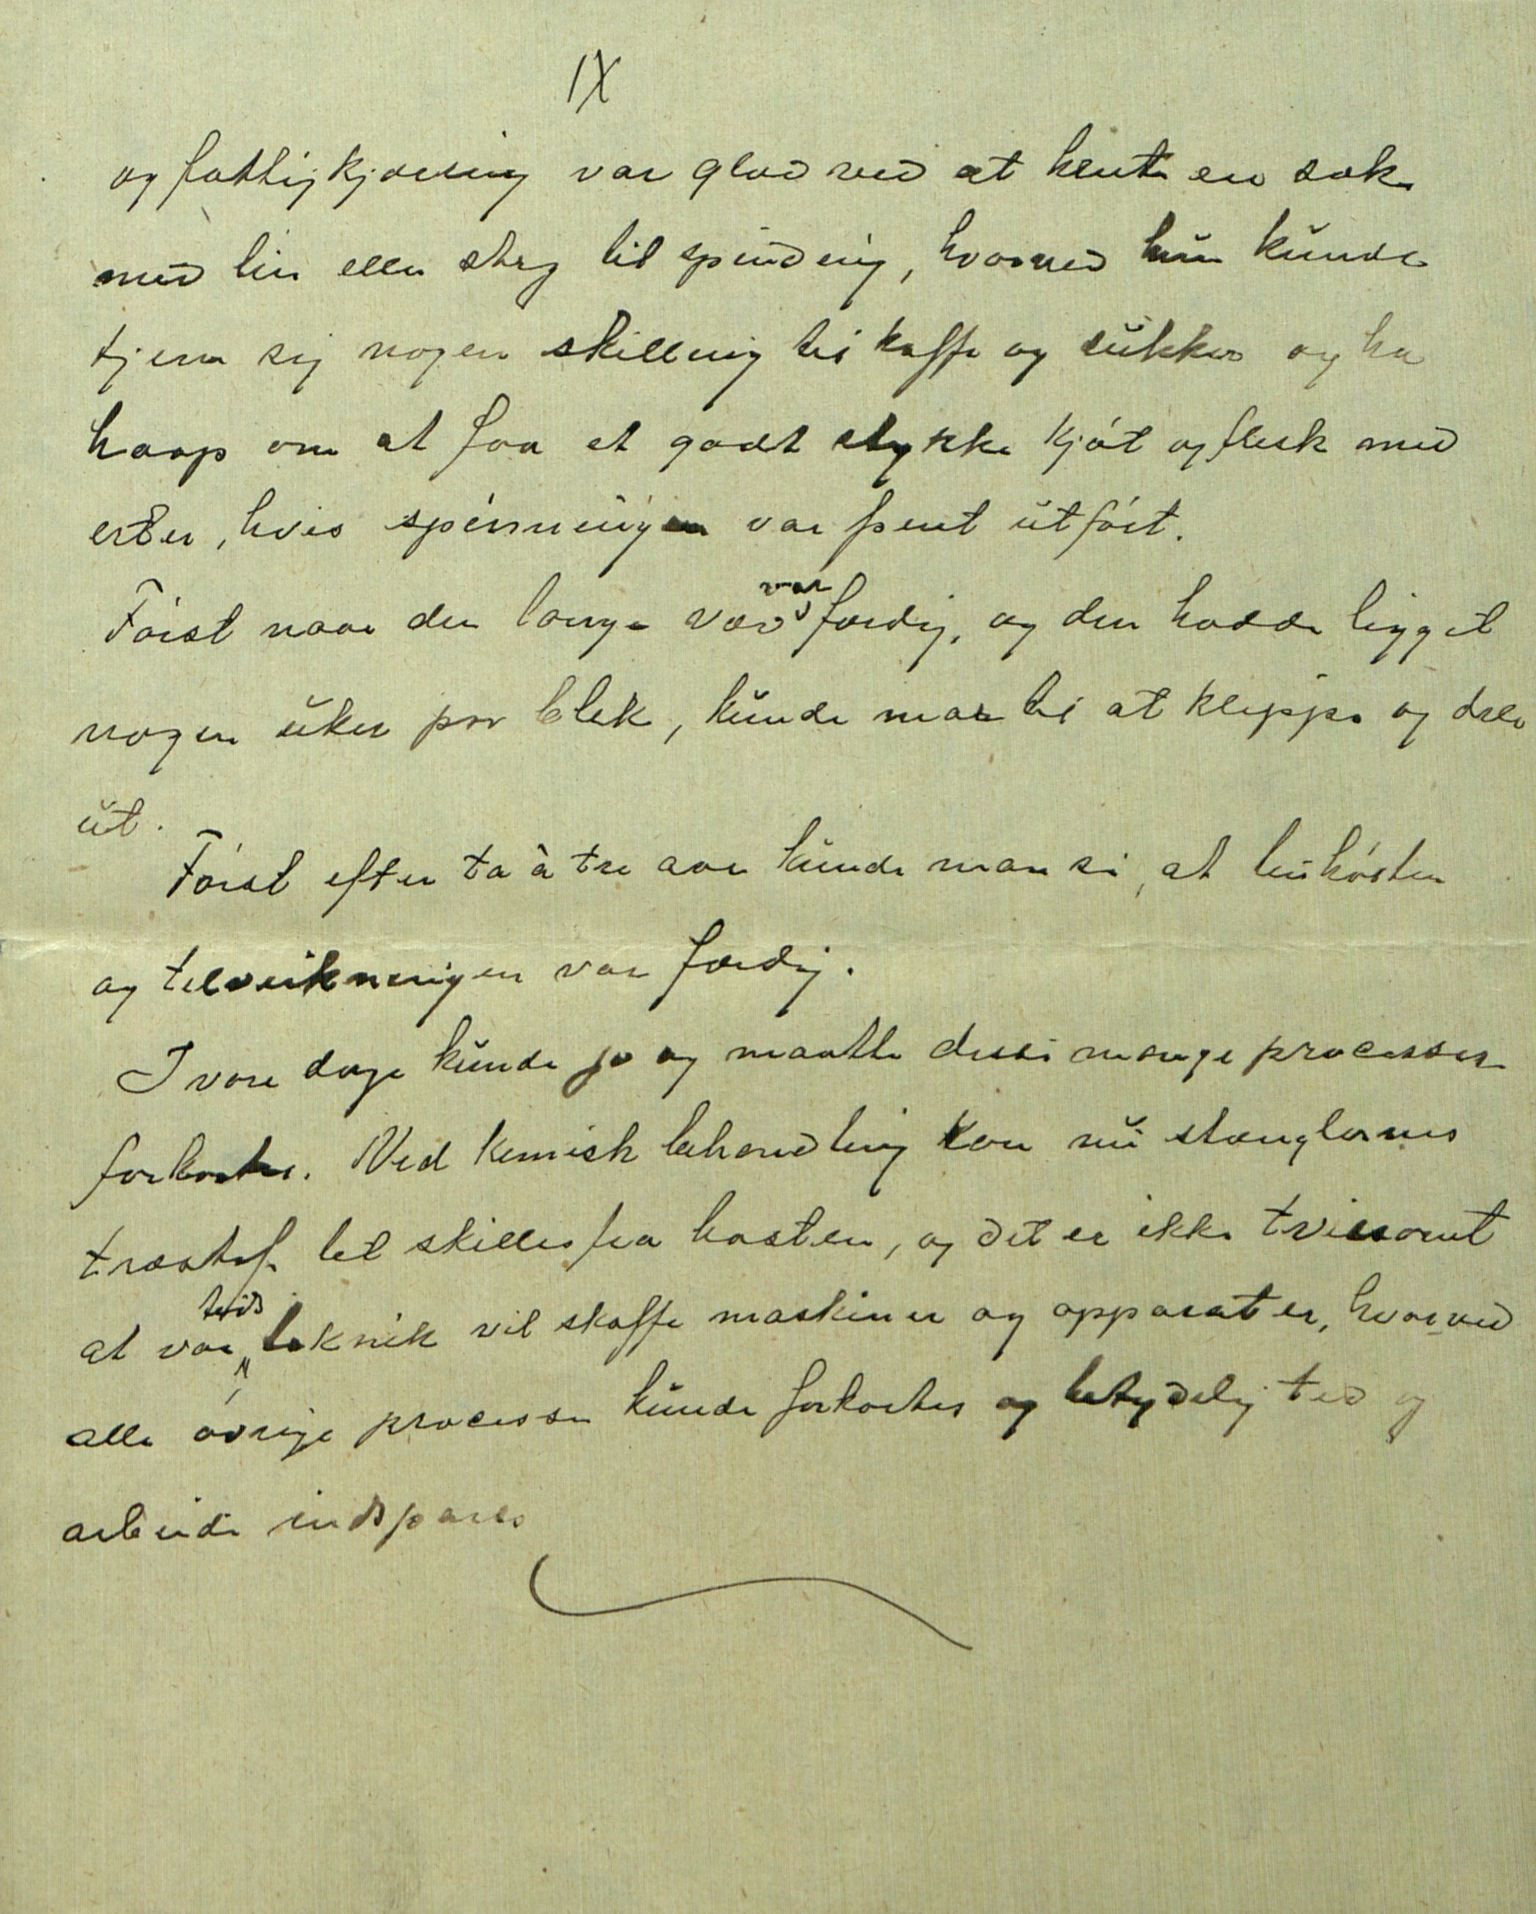 IX
og fattigkjærring var glad ved at hente en sæk
med lin eller stry til spinding, hvorved hun kunde
tjene sig nogen skilling til kaffe og sukker og ha
haap om at faa et godt stykke kjøt og flesk med
erter, hvis spinningen var pent utført.
Først naar den lange væv var færdig, og den hadde ligget
nogen uker paa blek, kunde man ti at klippe og dele
ut.
Først efter to à tre aar kunde man si, at linhøsten
og tilvirkningen var færdig.
I vore dage kunde jo og maatte disse mange processer
forkortes. Ved kemisk behandling kan nu stænglernes
træstof let skilles fra basten, og det er ikke tvilsomt
at vor tids teknik vil skaffe maskiner og apparater, hvorved
alle øvrige processer kunde forkortes og betydelig tid og
arbeide indspares